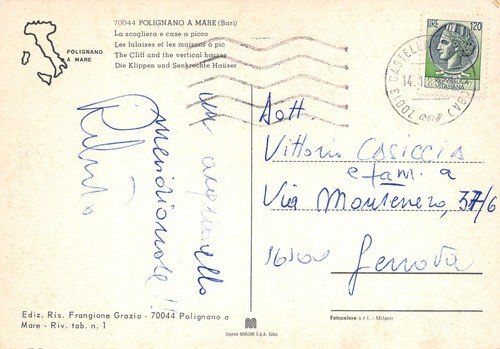 70044 POLIGNANO A MARE (Bari)
La scogliera e case a picco
Les falaises et les maisons à pic
The Cliff and the vertical houses
Die Klippen und Senkrechte Häuser
POLIGNANO
A MARE
LIRE 120
70013 CASTELL
14.1
(BA)
un acquerello
meridionale!!
Roberto
Dott.
Vittorio CASICCIA
e fam.a
Via Montenero, 37/6
16100 Genova
Ediz. Ris. Frangione Grazia - 70044 Polignano a
Mare - Riv. tab. n. 1
Fotocelere s.r.l. - Milano